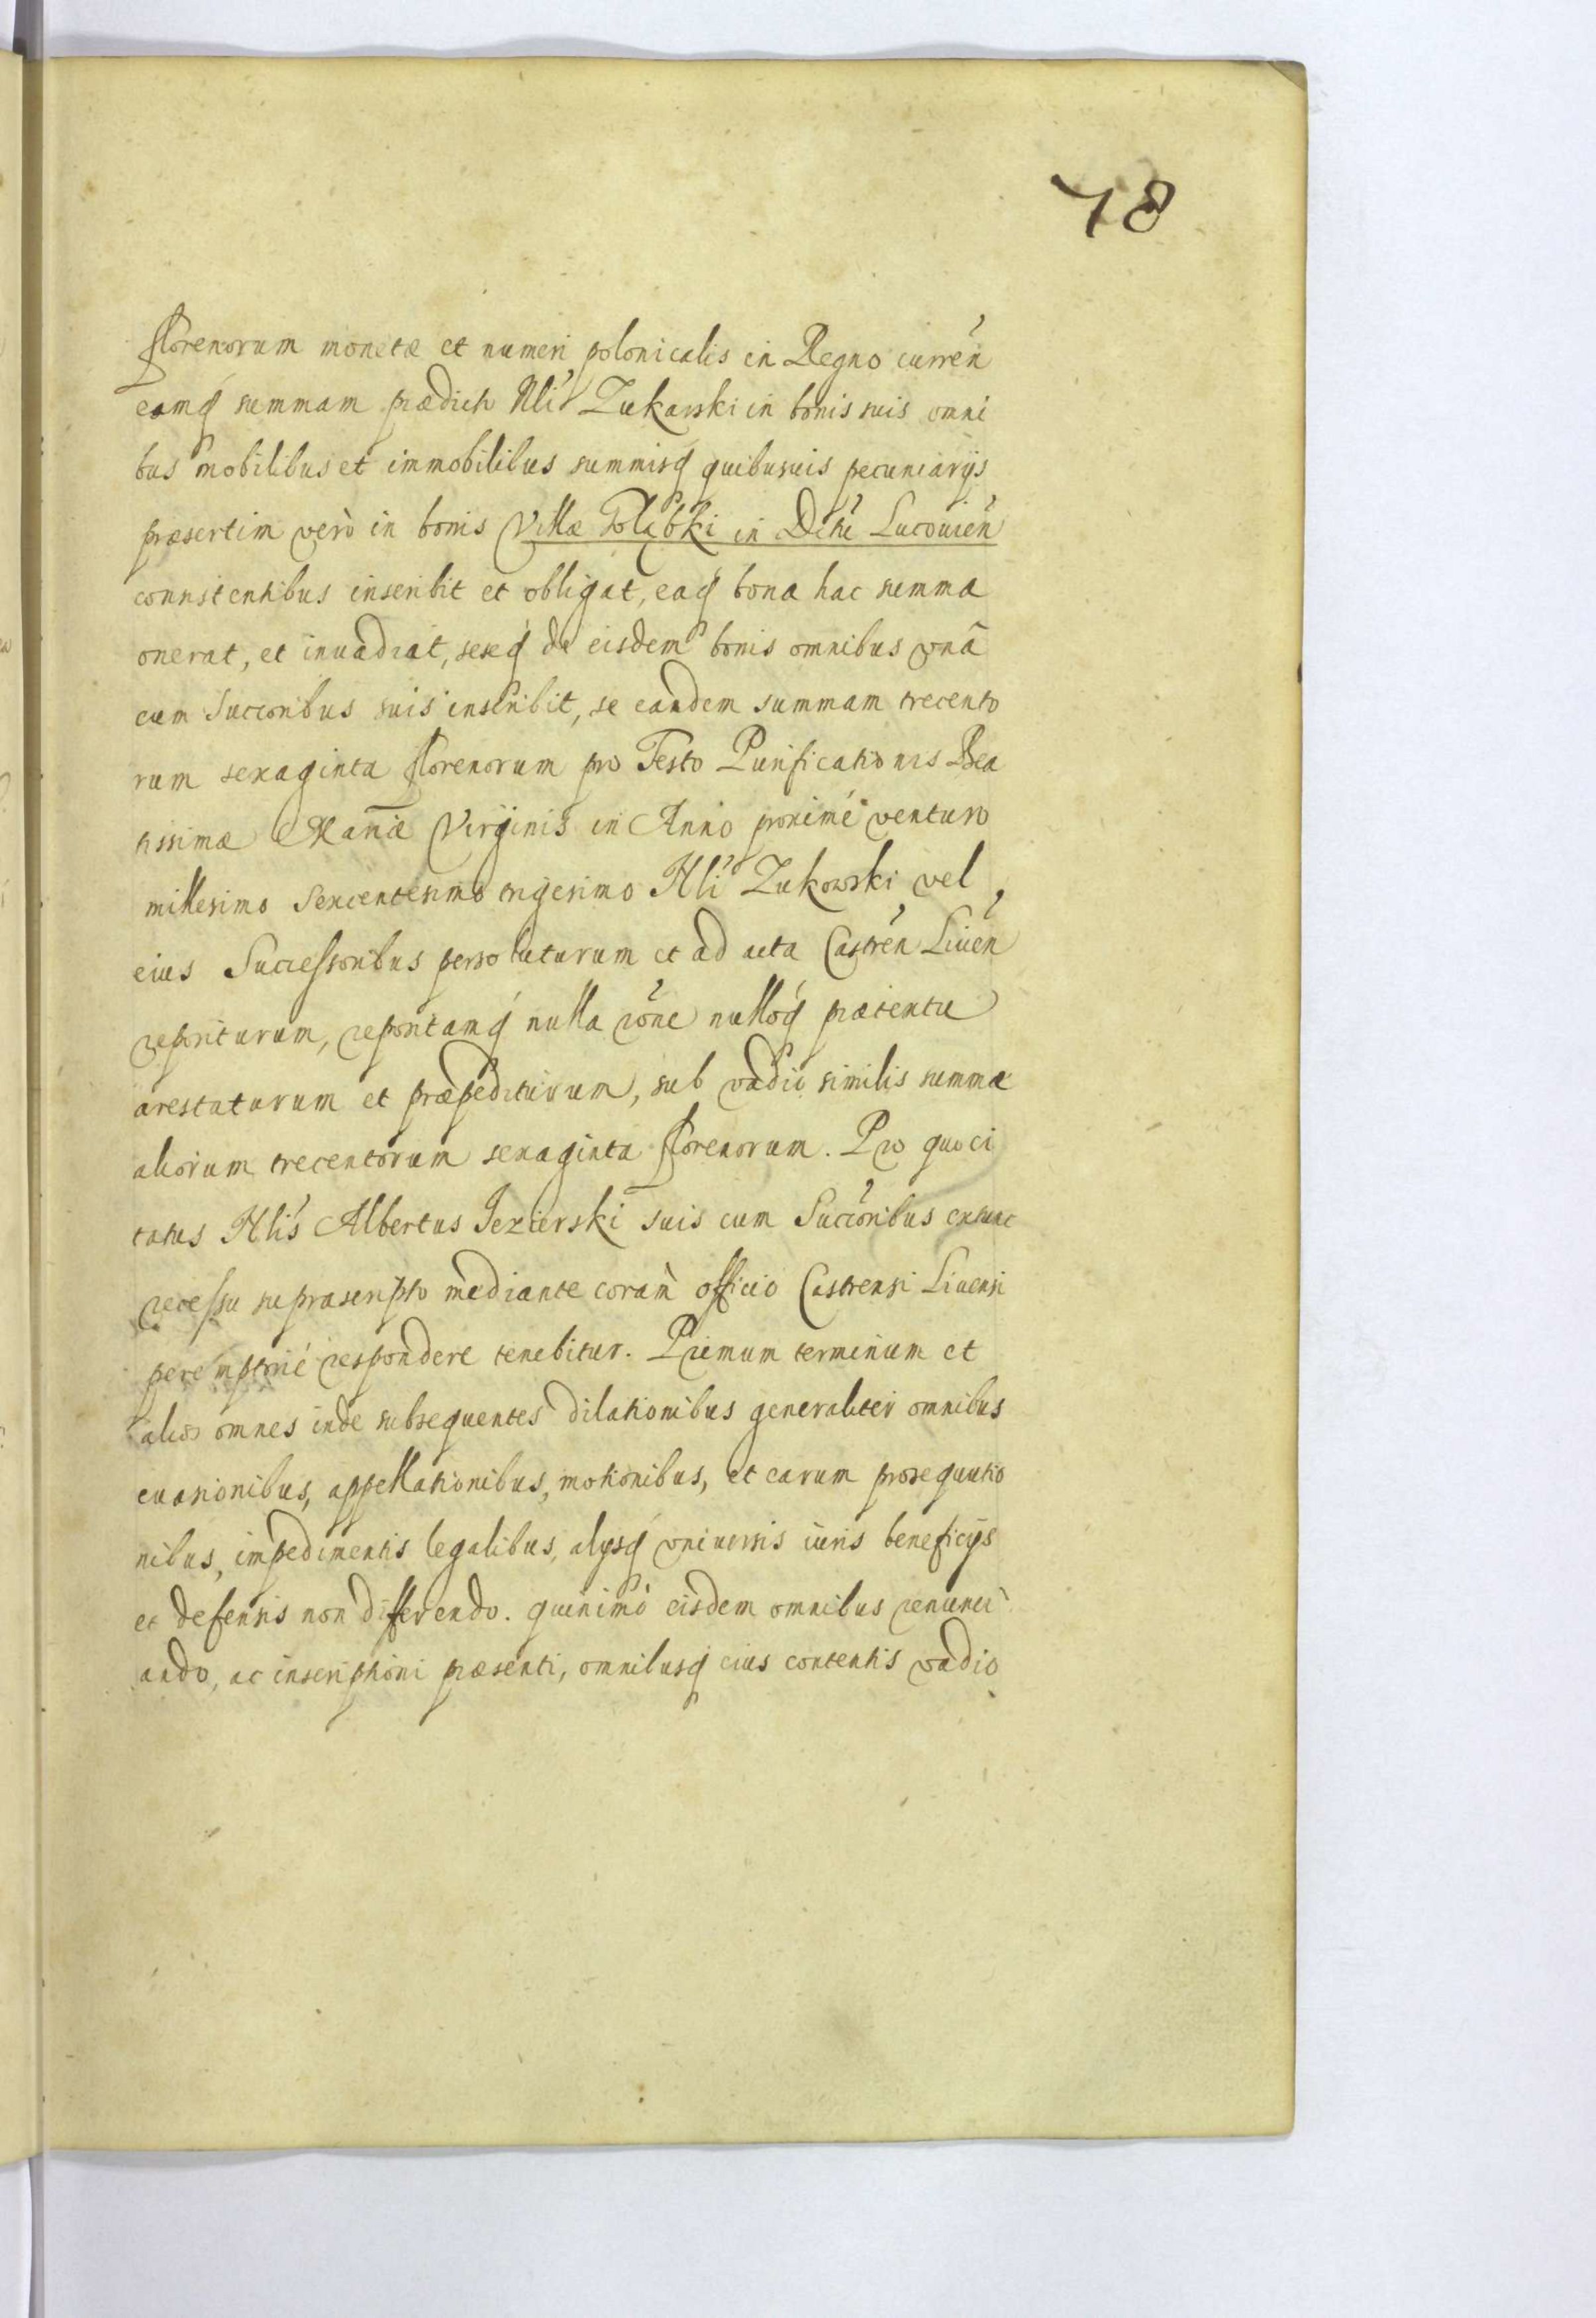 48
florenorum monetæ et numeri polonicalis in Regno curren̄
eamq́ summam prædicto Nli Zukowski in bonis suis omni
bus mobilibus et immobilibus summisq́ quibusuis pecuniarijs
præsertim verò in bonis Villæ Gołąbki in Dctũ Lucouien̄
consistentibus inscribit et obligat, eaq́ bona hac summa
onerat, et inuadiat, seseq́ de eisdem bonis omnibus vnà
cum Succoribus suis inscribit, se eandem summam trecento
rum sexaginta florenorum pro Festo Purificationis Bea
tissimæ Mariæ Virginis in Anno proximé venturo
millesimo Sexcentesimo trigesimo Nli Zukowski vel
eius Successoribus persoluturum et ad acta Castren̄ Liuen̄
repositurum, repositamq́ nulla rõne nulloq́ prætextu
arestaturum et præpediturum, sub vadio similis summæ
aliorum trecentorum sexaginta florenorum. Pro quo ci
tatus Nlis Albertus Jezierski suis cum Succoribus extunc
recessu suprascripto mediante coram officio Castrensi Liuensi
peremptorié respondere tenebitur. Primum terminum et
alios omnes inde subsequentes dilationibus generaliter omnibus
euasionibus, appellationibus, motionibus, et earum prosequutio
nibus, impedimentis legalibus, alysq́ vniuersis iuris beneficijs
et defensis non differendo. quinimò eisdem omnibus renunci
ando, ac inscriptioni præsenti, omnibusq́ eius contentis vadio